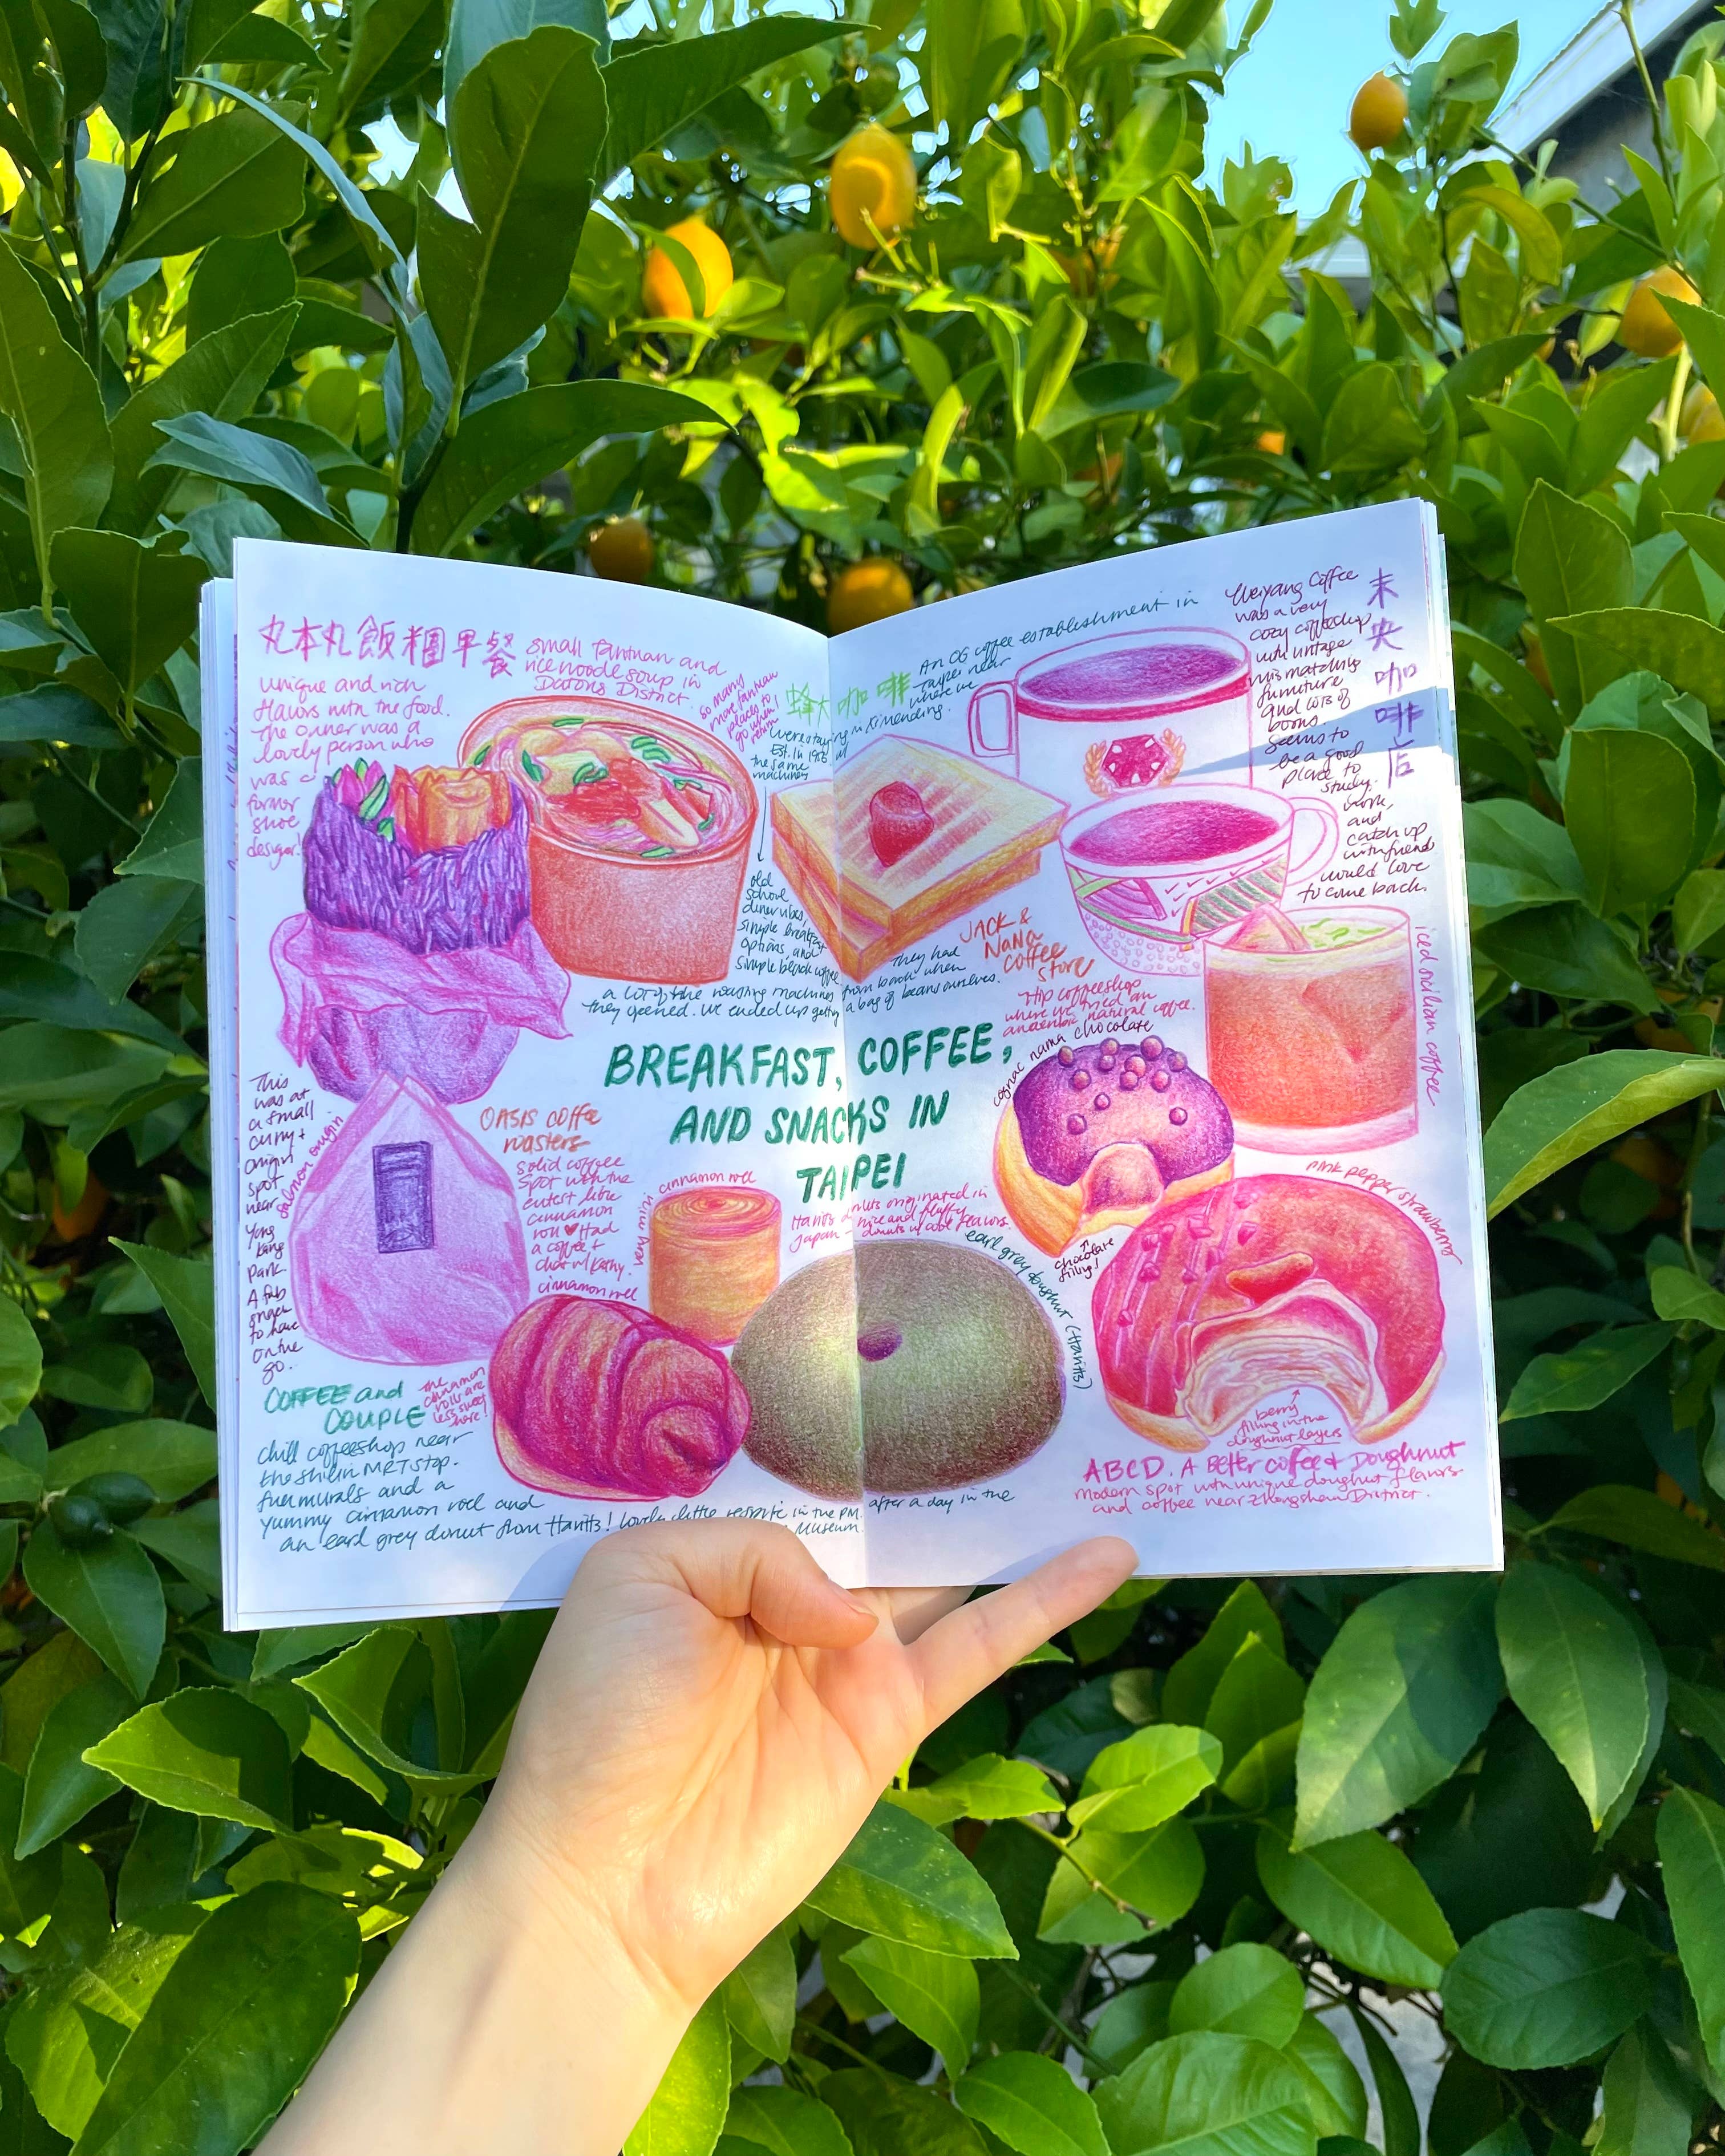 丸本丸飯糰早餐
small fantuan and
rice noodle soup in
Datong District.
unique and rich
flavors with the food.
the owner was a
lovely person who
was a
former
shoe
designer!
so many
more fantuan
places to
go when I
return!
蜂大咖啡
An OG coffee establishment in
Taipei near
where we
were staying in Ximending.
Est. in 1956 w/
the same
machinery
old
school
diner vibes,
simple breakfast
options, and
simple black coffee.
They had
a lot of the roasting machines from back when
they opened. We ended up getting a bag of beans ourselves.
未央咖啡店
Weiyang Coffee
was a very
cozy coffeeshop
with vintage
mismatching
furniture
and lots of
books.
Seems to
be a good
place to
study,
work,
and
catch up
with friends
would love
to come back.
JACK &
NaNa
coffee
store
Hip coffeeshop
where we tried an
anaerobic natural coffee.
iced sicilian coffee
BREAKFAST, COFFEE,
AND SNACKS IN
TAIPEI
This
was at
a small
curry +
onigiri
spot
near
Yong
Kang
Park.
A fab
snack
to have
on the
go.
salmon onigiri
OASIS coffee
roasters
solid coffee
spot with the
cutest little
cinnamon
roll ♥ Had
a coffee +
chat w/ Kathy.
very mini cinnamon roll
cinnamon roll
Haritts donuts originated in
Japan - nice and fluffy
donuts w/ cool flavors.
earl grey doughnut (Haritts)
cognac nama chocolate
chocolate
filling!
pink pepper strawberry
berry
filling in the
doughnut layers
ABCD. A Better coffee + Doughnut
modern spot with unique doughnut flavors
and coffee near Zhongshan District.
COFFEE and
COUPLE
the
cinnamon
rolls are
less sweet
here!
chill coffeeshop near
the Shilin MRT stop.
fun murals and a
yummy cinnamon roll and
an earl grey donut from Haritts! Lovely little respite in the PM after a day in the
Museum.